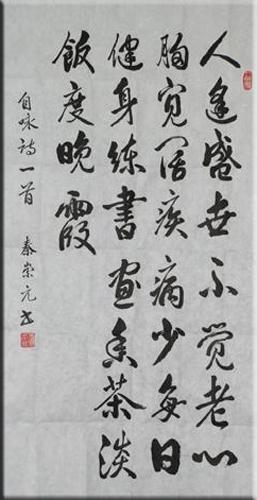 人逢盛世不觉老心
胸宽阔疾病少每日
健身练书画香茶淡
饭度晚霞
自咏诗一首 秦崇元书